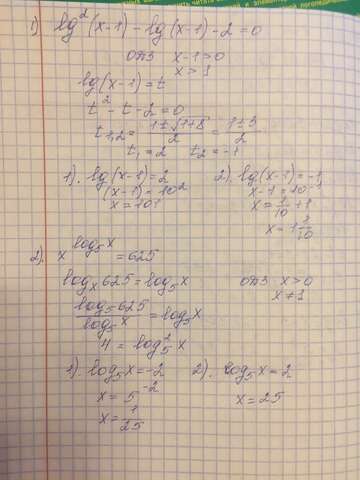 1) lg²(x-1) - lg(x-1) - 2 = 0
ОДЗ x-1>0
x>1
lg(x-1) = t
t² - t - 2 = 0
t₁,₂ = (1±√(1+8))/2 = (1±3)/2
t₁ = 2 t₂ = -1
1). lg(x-1) = 2 2). lg(x-1) = -1
(x-1) = 10² x-1 = 10⁻¹
x = 101 x = 1/10 + 1
x = 1 1/10
2). x^(log₅x) = 625
logₓ625 = log₅x ОДЗ x>0
x≠1
log₅625/log₅x = log₅x
4 = log₅²x
1). log₅x = -2 2). log₅x = 2
x = 5⁻² x = 25
x = 1/25